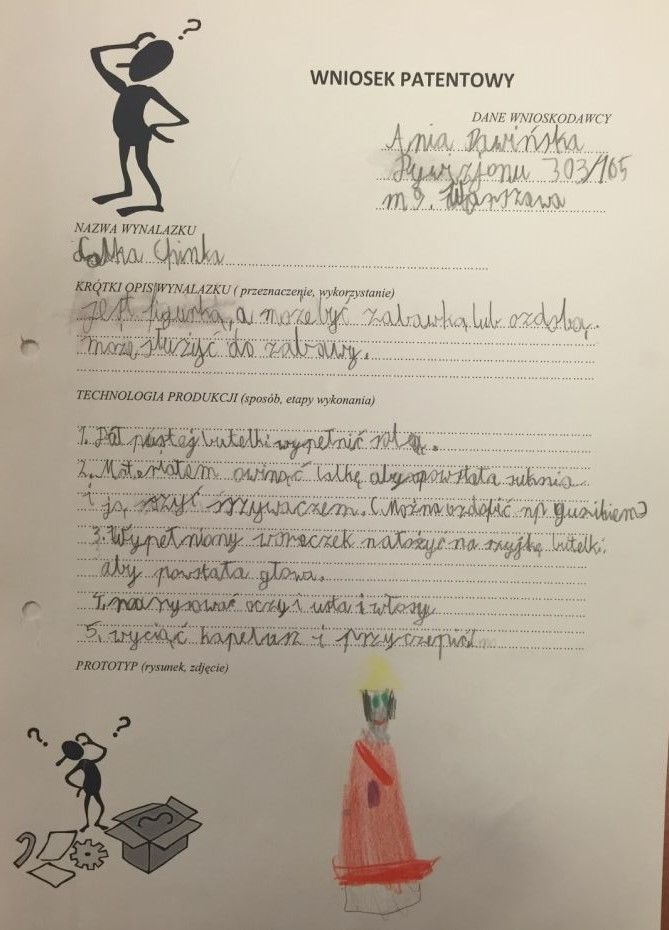 ?
WNIOSEK PATENTOWY
DANE WNIOSKODAWCY
Ania
303/165
m 9. Warszawa
NAZWA WYNALAZKU
Lalka
KRÓTKI OPIS WYNALAZKU ( przeznaczenie, wykorzystanie)
jest figurką, a może być zabawką lub ozdobą.
może służyć do zabawy.
TECHNOLOGIA PRODUKCJI (sposób, etapy wykonania)
1. Pół butelki wypełnić solą.
2. Materiałem owinąć lalkę aby powstała suknia
i ją zszyć zszywaczem. (Można ozdobić np guzikiem)
3. Wypełniony woreczek nałożyć na szyjkę butelki
aby powstała głowa.
4. narysować oczy i usta i włosy
5. wyciąć kapelusz i przyczepić
PROTOTYP (rysunek, zdjęcie)
? ?